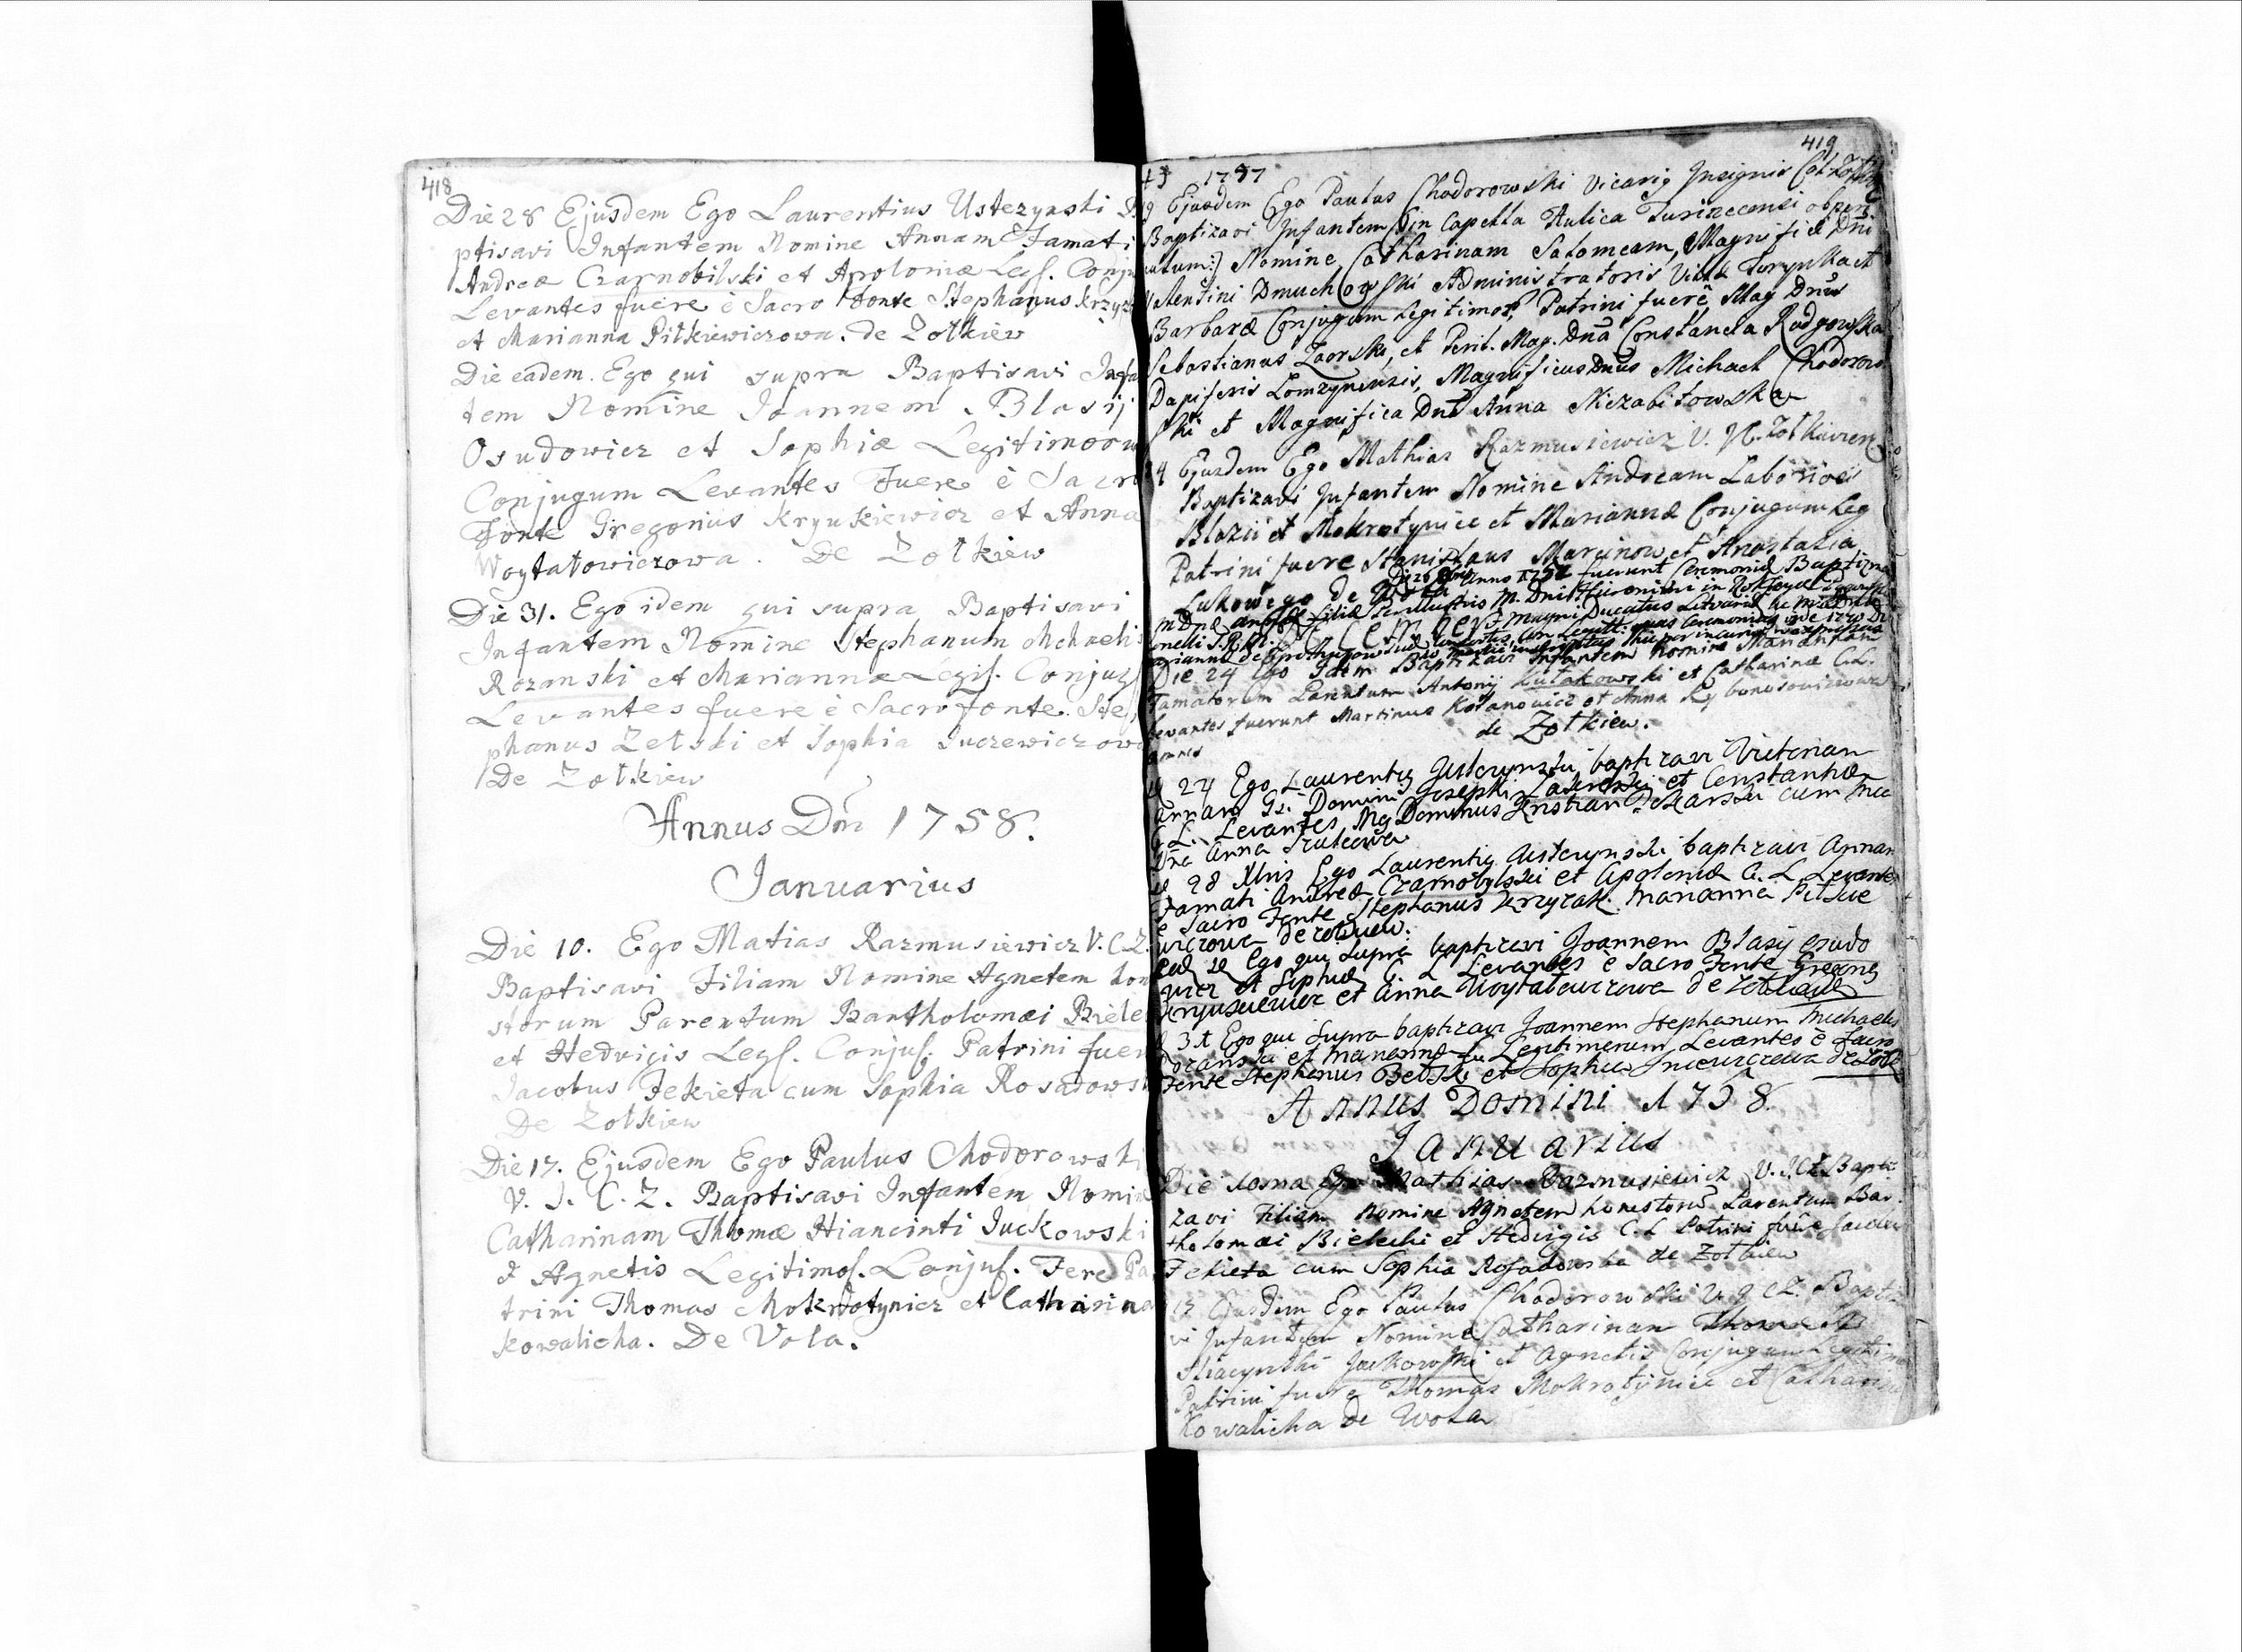 418
Die 28 Ejusdem Ego Laurentius Usterzynski
ptisavi Infantem Nomine Annam Famati
Andreæ Czarnobilski et Apoloniæ Legl. Conju
Levantes fuere è Sacro Fonte Stephanus Krzyz
et Marianna Pitkiewiczowa. de Zołkiew
Die eadem. Ego qui supra Baptisavi Infa
tem Nomine Joannem Blasij
Osudowicz et Sophiæ Legitimoru
Conjugum Levantes Fuere è Sacro
Fonte Gregorius Krynkiewicz et Anna
Woytatowiczowa. De Zołkiew
Die 31. Ego idem qui supra Baptisavi
Infantem Nomine Stephanum Mchaelis
Rozanski et Mariannæ Legit. Conjug
Levantes fuere è Sacro Fonte. Ste
phanus Zelski et Sophia Suczewiczowa
De Zołkiew
Annus Dni 1758.
Januarius
Die 10. Ego Matias Razmusiewicz V. C. Z.
Baptisavi Filiam Nomine Agnetem hon
storum Parentum Bartholomæi Biele
et Hedvigis Legl. Conjul. Patrini fuer
Jacobus Fekieta cum Sophia Rosadowsk
De Zołkiew
Die 17. Ejusdem Ego Paulus Chodorowski
V. I. C. Z. Baptisavi Infantem Nomin
Catharinam Thomæ Hiancinti Juckowski
et Agnetis Legitimol. Conjul. Fere Pa
trini Thomas Mokrotynicz et Catharina
Kowalicha. De Vola.
419
1757
Ejusdem Ego Paulus Chodorowski Vicarig Insignis Col.
Baptizavi Infantem in Capella Aulica Turinecensi
Nomine Catharinam Salomeam, Magnifici Dni
Valentini Dmuchowski Administratoris Turynka et
Barbaræ Conjugum Legitimor, Patrini fuere Mag Dnus
Sebastianus Zaorski, et Perit. Mag. Dna Constancia Radgowska
Dapiferis Lomzynensis, Magnificus Dnus Michael Chodorow
ski et Magnifica Dna Anna Niezabitowska
Ejusdem Ego Mathias Razmusiewicz V.
Baptizavi Infantem Nomine Andream Laboriosi
Blazii et Mokrotynice et Mariannæ Conjugum Leg
Patrini fuere Stanislaus Marcinow et Anastazia
Lukowego de Wola
Anno 1758 fuerunt Ceremoniæ Baptizma
filiæ M. Dni Hieronimi in
Magni Ducatus Litvaniæ
December
Die 24 Ego Idem Baptizavi Infantem nomine Mariannam
Famatorum Parentum Antonij Kulakowski et Catharinæ C. L.
Levantes fuerunt Martinus Kozanowicz et Anna
omnes de Zołkiew.
24 Ego Laurentig Usterzynski baptizavi Victoriam
Annam Gi. Domini Josephi et Constantiæ
C. L. Levantes Mg Dominus cum
Dna Anna
28 Xbris Ego Laurentig Usterzynski baptizavi Annam
Famati Andreæ Czarnobylski et Apoloniæ C. L. Levantes
è Sacro Fonte Stephanus Krzyzak Marianna Pitkie
wiczowa de Zołkiew.
Ego qui supra baptizavi Joannem Blasij Osudo
wicz et Sophiæ C. L Levantes è Sacro Fonte Gregorig
Krynkiewicz et Anna Woytatowiczowa de Zołkiew
31 Ego qui supra baptizavi Joannem Stephanum Michaelis
Rozanski et Mariannæ Legitimorum Levantes è Sacro
Fonte Stephanus Belski et Sophia de Zołk
Annus Domini 1758.
Januarius
Die 10ma Ego Mathias Razmusiewicz V. I. C. Z. Bapti
zavi Filiam Nomine Agnetem honestoru Parentum Bar
tholomæi Bielecki et Hedvigis C. L Patrini fuere Jacobus
Fekieta cum Sophia Rosadowska de Zołkiew
17 Ejusdem Ego Paulus Chodorowski V. I. C. Z. Bapti
vi Infantem Nomine Catharinam
Hiacynthi Juckowski et Agnetis Conjugum Legitim
Patrini fuere Thomas Mokrotynicz et Catharina
Kowalicha de Wola